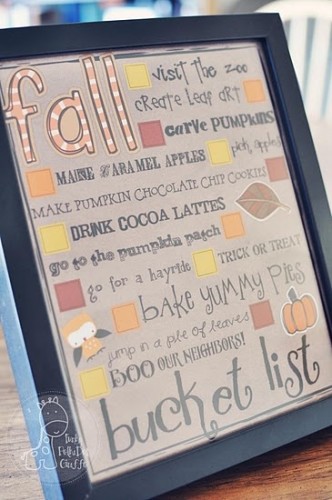 fall
visit the zoo
create leaf art
carve pumpkins
MAKE CARAMEL APPLES
pick apples
MAKE PUMPKIN CHOCOLATE CHIP COOKIES
DRINK COCOA LATTES
go to the pumpkin patch
go for a hayride
TRICK OR TREAT
bake yummy pies
jump in a pile of leaves
BOO OUR NEIGHBORS!
bucket list